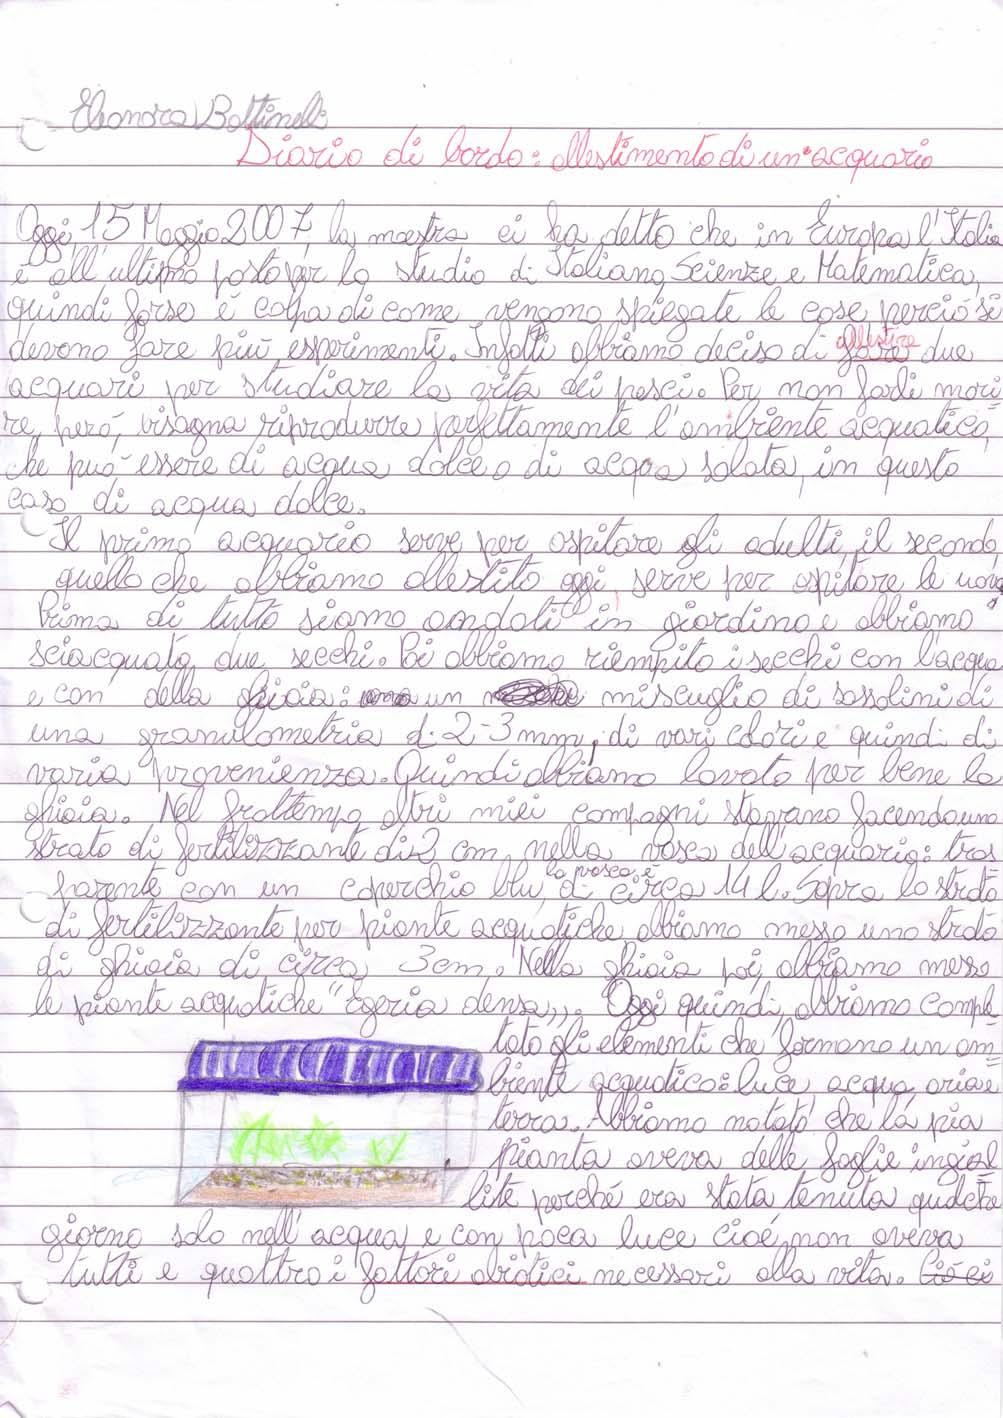 Eleonora Bottinelli
Diario di bordo: allestimento di un acquario
Oggi, 15 Maggio 2007, la maestra ci ha detto che in Europa l'Italia
è all'ultimo posto per lo studio di Italiano, Scienze e Matematica,
quindi forse è colpa di come vengono spiegate le cose perciò si
devono fare più esperimenti. Infatti abbiamo deciso di fare allestire due
acquari per studiare la vita dei pesci. Per non farli mori-
re, però, bisogna riprodurre perfettamente l'ambiente acquatico,
che può essere di acqua dolce o di acqua salata, in questo
caso di acqua dolce.
Il primo acquario serve per ospitare gli adulti, il secondo,
quello che abbiamo allestito oggi, serve per ospitare le uova.
Prima di tutto siamo andati in giardino e abbiamo
sciacquato due secchi. Poi abbiamo riempito i secchi con l'acqua
e con della ghiaia: un miscuglio di sassolini di
una granulometria di 2-3 mm, di vari colori e quindi di
varia provenienza. Quindi abbiamo lavato per bene la
ghiaia. Nel frattempo altri miei compagni stavano facendo uno
strato di fertilizzante di 2 cm nella vasca dell'acquario: tras
parente con un coperchio blu, la vasca è di circa 14 l. Sopra lo strato
di fertilizzante per piante acquatiche abbiamo messo uno strato
di ghiaia di circa 3 cm. Nella ghiaia poi, abbiamo messo
le piante acquatiche "Egeria densa". Oggi quindi, abbiamo comple
tato gli elementi che formano un am-
biente acquatico: luce, acqua, aria e
terra. Abbiamo notato che la mia
pianta aveva delle foglie ingial
lite perché era stata tenuta qualche
giorno solo nell'acqua e con poca luce cioé, non aveva
tutti e quattro i fattori abiotici necessari alla vita. Ciò ci